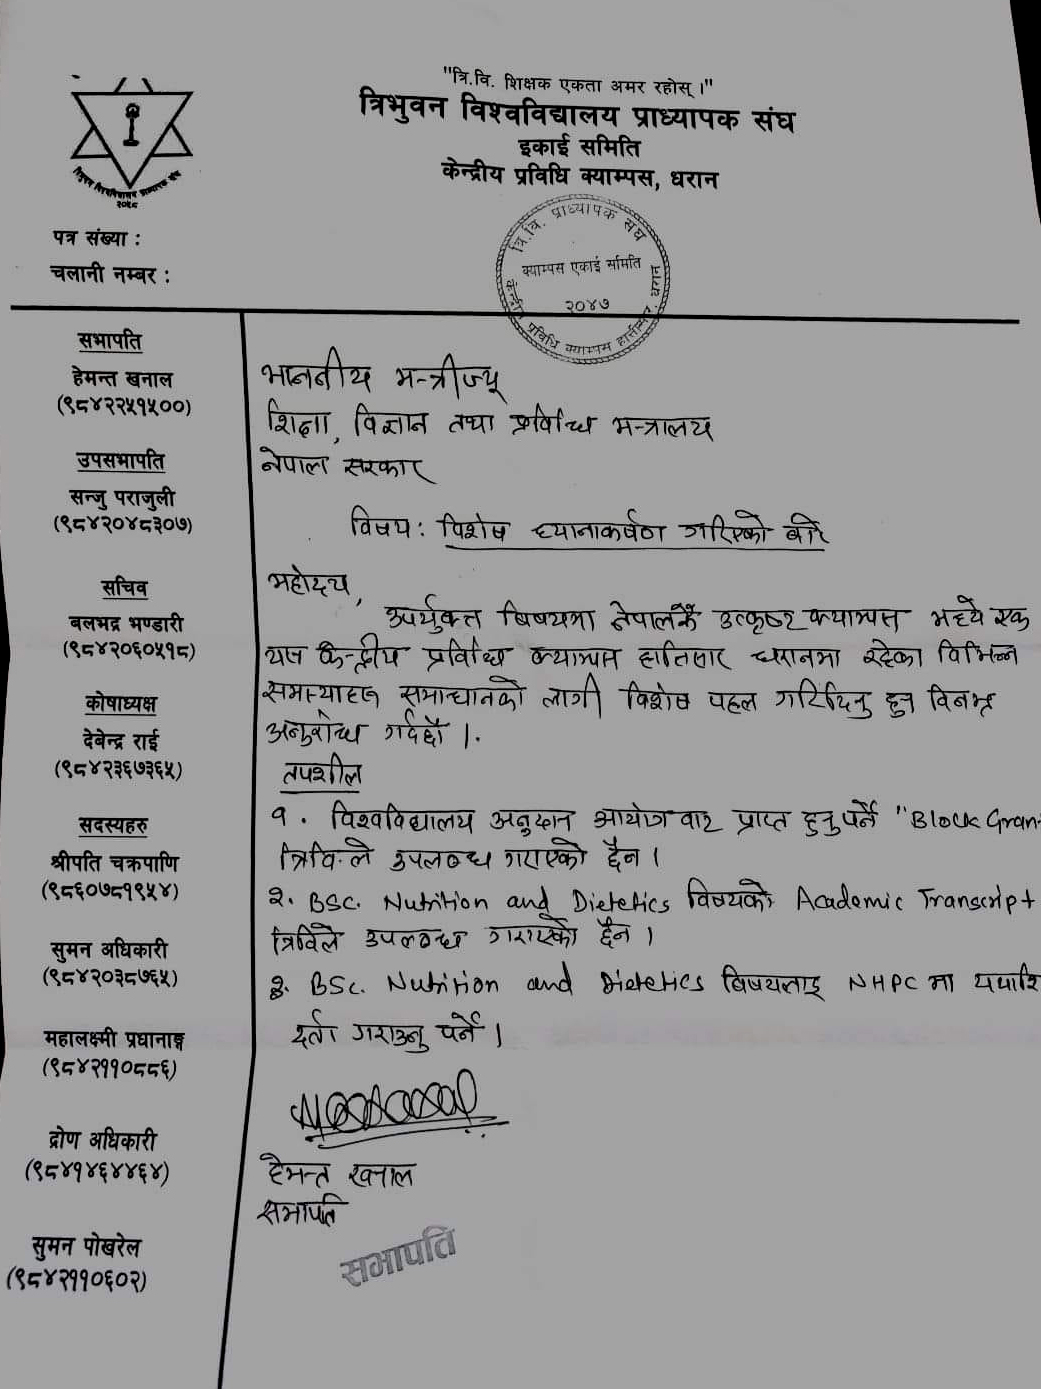 "त्रि.वि. शिक्षक एकता अमर रहोस् ।"
त्रिभुवन विश्वविद्यालय प्राध्यापक संघ
इकाई समिति
केन्द्रीय प्रविधि क्याम्पस, धरान
त्रिभुवन विश्वविद्यालय प्राध्यापक संघ
पत्र संख्या :
चलानी नम्बर :
त्रि.वि. प्राध्यापक संघ
क्याम्पस एकाई समिति
२०४७
केन्द्रीय प्रविधि क्याम्पस हात्तीसार, धरान
सभापति
हेमन्त खनाल
(९८४२२५१५००)
उपसभापति
सन्जु पराजुली
(९८४२०४८३०७)
सचिव
बलभद्र भण्डारी
(९८४२०६०५१८)
कोषाध्यक्ष
देबेन्द्र राई
(९८४२३६७३६५)
सदस्यहरु
श्रीपति चक्रपाणि
(९८६०७८१९५४)
सुमन अधिकारी
(९८४२०३८७६५)
महालक्ष्मी प्रधानाङ्ग
(९८४२११०८८६)
द्रोण अधिकारी
(९८४१४६४४६४)
सुमन पोखरेल
(९८४२११०६०२)
माननीय मन्त्रीज्यू
शिक्षा, विज्ञान तथा प्रविधि मन्त्रालय
नेपाल सरकार
विषय: विशेष ध्यानाकर्षण गरिएको बारे
महोदय,
उपर्युक्त बिषयमा नेपालकै उत्कृष्ट क्याम्पस मध्ये एक
यस केन्द्रीय प्रविधि क्याम्पस हात्तिसार धरानमा रहेका विभिन्न
समस्याहरु समाधानको लागी विशेष पहल गरिदिनु हुन विनम्र
अनुरोध गर्दछौं ।
तपशील
१. विश्वविद्यालय अनुदान आयोग बाट प्राप्त हुनु पर्ने "Block Gran
त्रिवि.ले उपलब्ध गराएको छैन ।
२. BSc. Nutrition and Dietetics विषयको Academic Transcript
त्रिविले उपलब्ध गराएको छैन ।
३. BSc. Nutrition and Dietetics बिषयलाइ NHPC मा यथाशि
दर्ता गराउनु पर्ने ।
हेमन्त खनाल
सभापति
सभापति